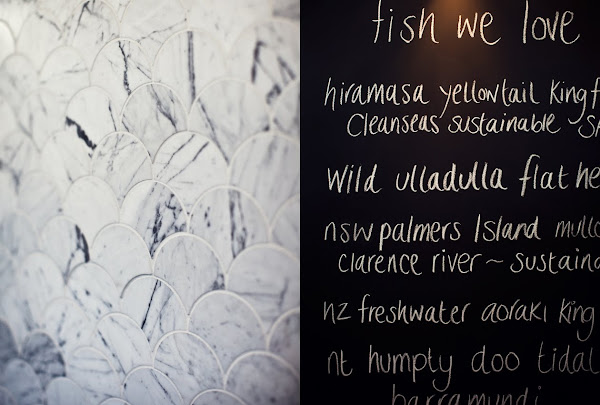 fish we love
hiramasa yellowtail kingf
Cleanseas sustainable ~ SA
wild ulladulla flathe
nsw palmers Island mullo
clarence river ~ sustaina
nz freshwater aoraki king
nt humpty doo tidal
barramundi